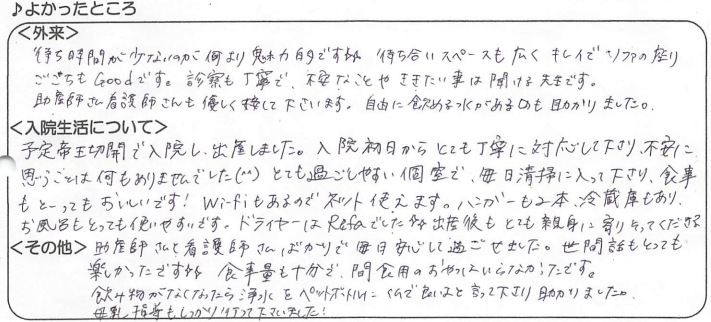 ♪よかったところ
<外来>
待ち時間が少ないのが何より魅力的です 待ち合いスペースも広くキレイでソファの座り
ごこちもGoodです。診察も丁寧で、不安なことやききたい事は聞ける先生です。
助産師さん看護師さんも優しく接して下さいます。自由に飲める水があるのも助かりました。
<入院生活について>
予定帝王切開で入院し、出産しました。入院初日からとても丁寧に対応して下さり、不安に
思うことは何もありませんでした(^^) とても過ごしやすい個室で、毎日清掃に入って下さり、食事
もとーってもおいしいです! Wi-fiもあるのでネット使えます。ハンガーも2本、冷蔵庫もあり、
お風呂もとっても使いやすいです。ドライヤーはRefaでした 出産後もとても親身に寄りそってくださる
<その他> 助産師さんと看護師さんばかりで毎日安心して過ごせました。世間話もとっても
楽しかったです 食事量も十分で、間食用のおやつはいらなかったです。
飲み物がなくなったら浄水をペットボトルにくんで良いよと言って下さり助かりました。
母乳指導もしっかり行って下さいました!